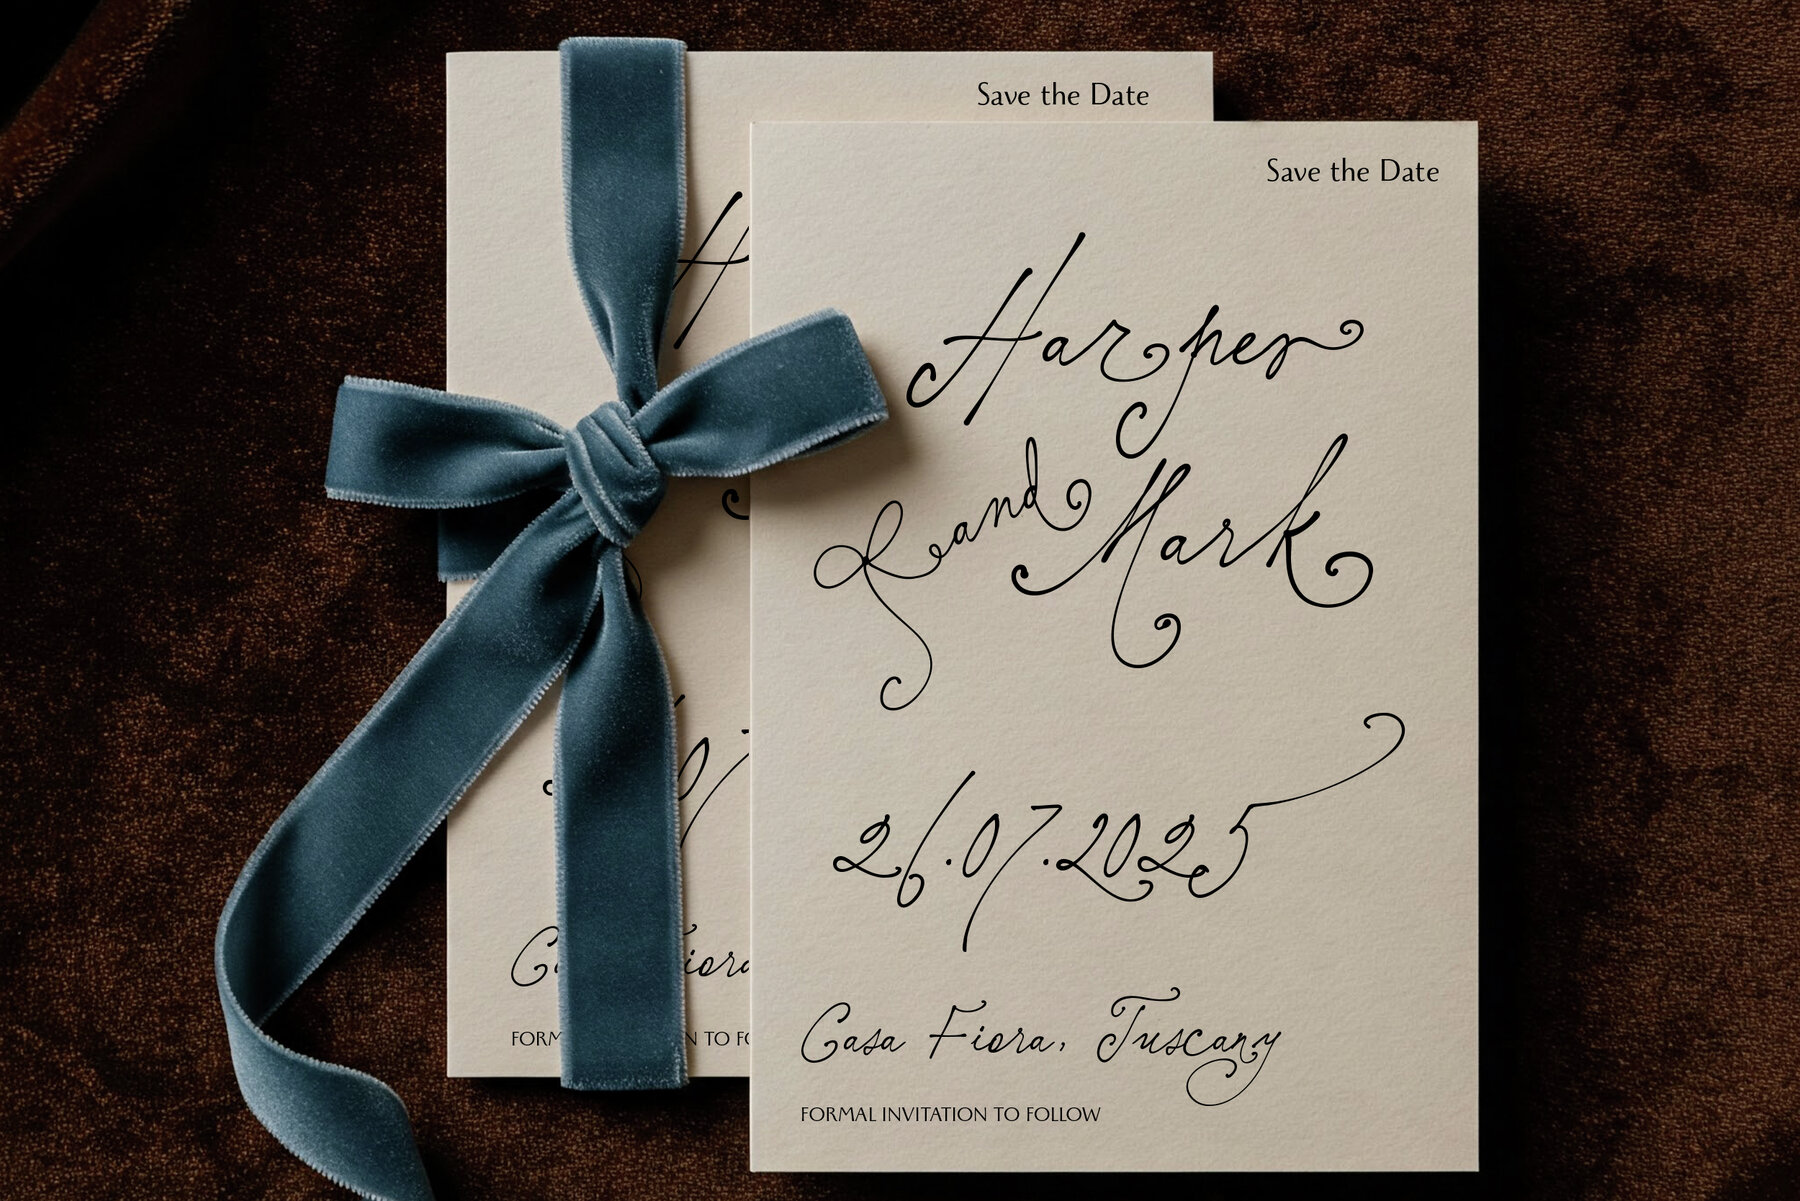 Save the Date
Save the Date
Harper
and Mark
26.07.2025
Casa Fiora, Tuscany
FORMAL INVITATION TO FOLLOW